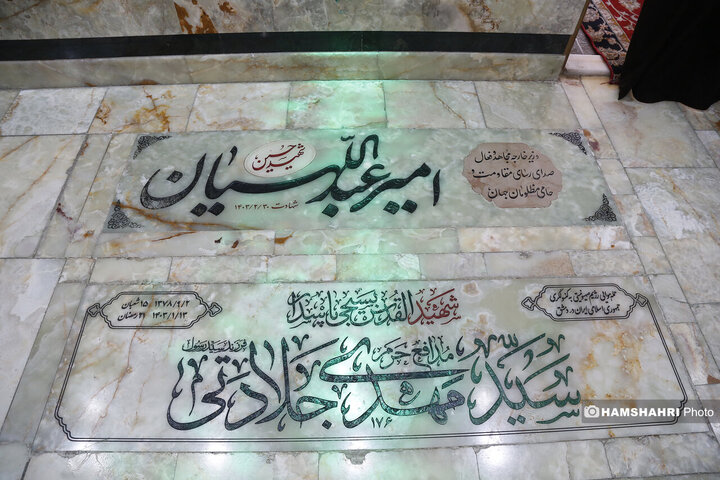 وزیر خارجه مجاهد و فعال
صدای رسای مقاومت و
حامی مظلومان جهان
شهید حسین
امیرعبداللهیان
شهادت ۱۴۰۳/۲/۳۰
حمله هوایی رژیم صهیونیستی به کنسولگری
جمهوری اسلامی ایران در دمشق
شهید القدس بسیجی پاسدار
۱۳۷۸/۹/۲ ۱۵ شعبان
۱۴۰۳/۱/۱۳ ۲۲ رمضان
فرزند سید رسول
مدافع حرم
سید مهدی جلادتی
۱۷۶
HAMSHAHRI Photo